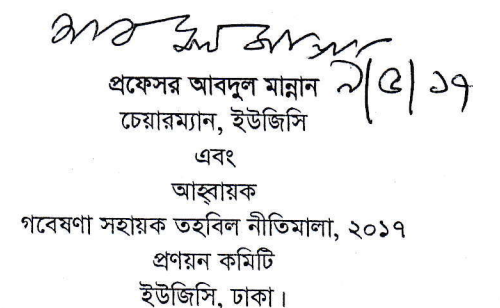 প্রফেসর আবদুল মান্নান ৯|৫|১৭
চেয়ারম্যান, ইউজিসি
এবং
আহ্বায়ক
গবেষণা সহায়ক তহবিল নীতিমালা, ২০১৭
প্রণয়ন কমিটি
ইউজিসি, ঢাকা।